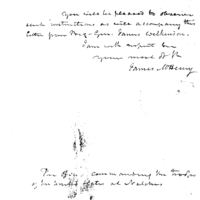 You will be pleased to observe
such instructions as will accompany this
letter from Brig. Gen. James Wilkinson.
I am with respect
your most Ob
James McHenry
The Officer commanding the troops
of the United States at Natchez